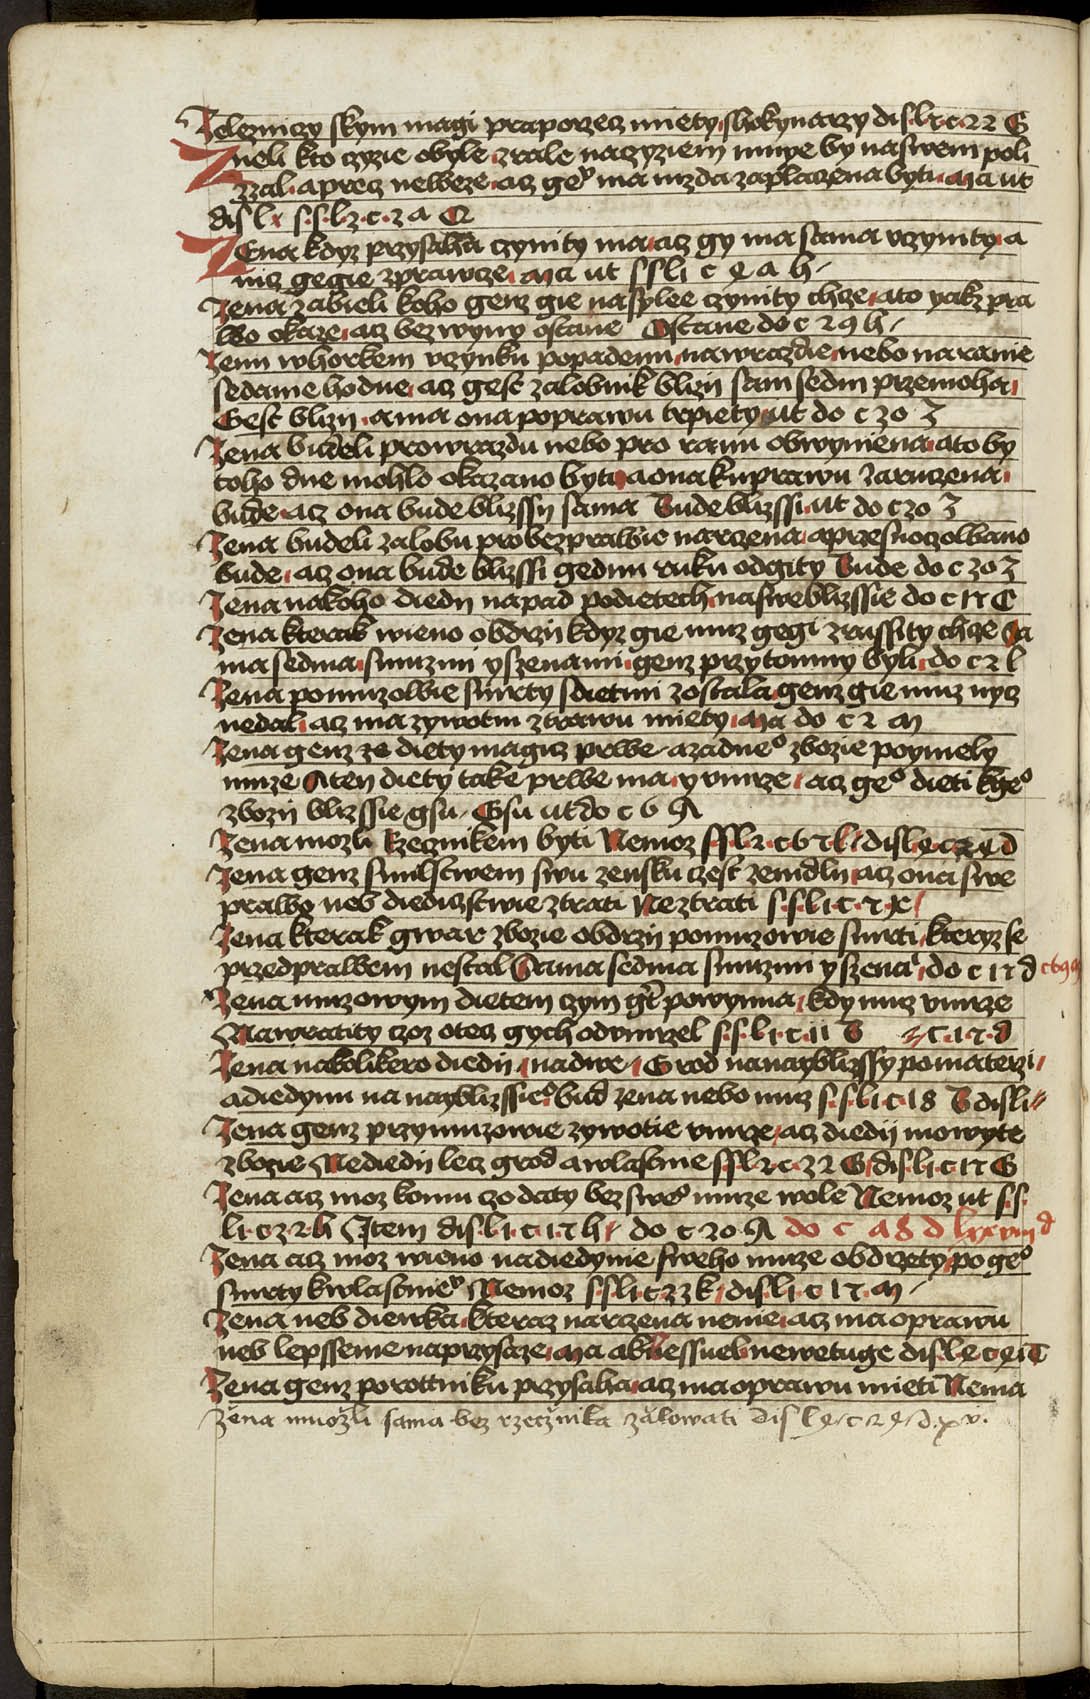 Zelezniczy skym magi praporzecz miety s hokynarzy disl x c 22 G
Zneli kto czyzie obyle zrale naczyziem mnye by naswem poli
zzal aprecz neweze acz geº ma mzda zaplaczena byti Ma ut
disl x ssl 2 c 2 a Q
ZEna kdyz przysahu czynity ma acz gy ma sama vczynity a
nicz gegie zprawcze Ma ut ssl i c 4 a h
Zena zabieli koho genz gie nasylee czynity chcze ato yakz pra
wo okaze acz bezwyny ostane Ostane do c 29 h
Zenu whorkem vczynku popadenu nawrazdie nebo naranie
sedanie hodne acz gest zalobnik blizii samsedm przemoha
Gest blizii ama ona poprawu trpiety ut do c 30 Z
Zena budeli prowrazdu nebo pro ranu obwyniena ato by
toho dne mohlo okazano byti aona kuprawu zaruczena
bude acz ona bude blizssii sama Bude blizssi ut do c 30 Z
Zena budeli zalobu probezprawie narczena aprzesnoczolbano
bude acz ona bude blizssi gednu ruku odgity Bude do c 30 Z
Zena nakoho diedii napad podietech nasweblizssie do c 17 C
Zena kterak wieno obdrzii kdyz gie muz gegi zrussity chcze Sa
ma sedma smuzmi yszenami genz przytomny byli do c 2 l
Zena pomuzowie smrty sdietmi zostala genz gie muz nycz
nedal acz ma zywotni ztrawu miety Ma do c 2 M
Zena genz ze diety magicz prwe azadneº zbozie poymely
muze A ten diety take prwe ma y vmrze acz geº dieti kgeº
zbozii blizssie gsu Gsu ut do c 6 A
Zena mozli Rzecznikem byti Nemoz ssl 2 c 67 l disl 4 c 24 d
Zena genz smilstwem swu zensku czest zemdlii acz ona swe
prawo neb diediczstwie ztrati Neztrati ssl i c 7 x
Zena kterak gwar zbozie obdrzii pomuzowie smrti kteryz se
przedprawem nestal Sama sedma smuzmi yszenai do c 17 d c 69
Zena muzowym dietem czym gest powynna kdy muz vmrze
Nawratity czoz otecz gych odvmrzel ssl i c 11 B c 17 d
Zena nakolikero diedii nadwe Grod nanayblizssy pomaterzi
adiedynu na nayblizssieº bud zena nebo muz ssl i c 18 B disl i
Zena genz przymuzowie zywotie vmrze acz diedii mowyte
zbozie Nediedii lecz grod awlastnie ssl 2 c 32 G disl i c 17 G
Zena acz moz komu czo daty bez sweº muze wole Nemoz ut ss
l i c 32 h Item disl i c 17 h do c 20 A do c a 8 d lxxviii d
Zena acz moz wieno nadiedynie sweho muze obdrzety po geº
smrty kwlastnieº Nemoz ssl i c 23 k disl i c 17 m
Zena neb diewka kteraz narczena nenie acz ma oprawu
neb lepssenie naprzysaze Ma ablessueb newetuge disl 4 c 4 i T
Zena genz porottniku przysaha acz ma oprawu mieti Nema
Zena muozli sama bez rzecznika zalowati dis l 4 c 24 d xv